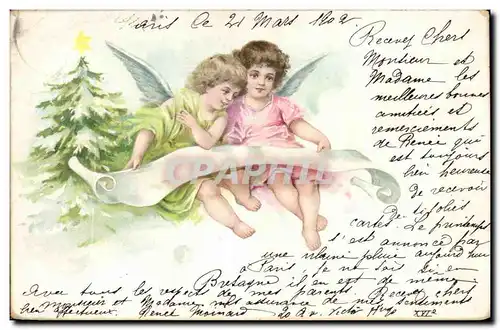 Paris le 21 Mars 1902
Recevez Chers
Monsieur et
Madame les
meilleures bonnes
amitiés et
remerciements
de Renée qui
est toujours
bien heureuse
de recevoir
de si jolies
cartes. Le printemps
s'est annoncé par
une vilaine pluie aujourd'hui
à Paris je ne sais si en
Bretagne il en est de même
Avec tous les respects de mes parents. Recevez chers
monsieur et Madame mes sentiments
bien affectueux. Renée Moinard 20 Av. Victor Hugo
XVIe
CPARAMA